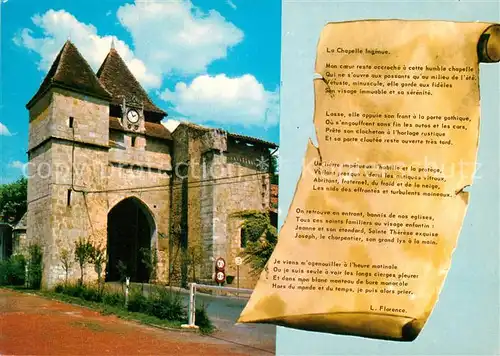 La Chapelle Ingénue.
Mon cœur reste accroché à cette humble chapelle
Qui ne s'ouvre aux passants qu'au milieu de l'été.
Vétuste, minuscule, elle garde aux fidèles
Son visage immuable et sa sérénité.
Lasse, elle appuie son front à la porte gothique,
Où s'engouffrent sans fin les autos et les cars,
Prête son clocheton à l'horloge rustique
Et sa porte cloutée reste ouverte très tard.
Un lierre impétueux l'habille et la protège,
Voilant les antiques vitraux,
Abritant, fraternel, du froid et de la neige,
Les nids des effrontés et turbulents moineaux.
On retrouve en entrant, bannis de nos églises,
Tous ces saints familiers au visage enfantin :
Jeanne et son étendard, Sainte Thérèse exquise
Joseph, le charpentier, son grand lys à la main.
Je viens m'agenouiller à l'heure matinale
Où je suis seule à voir les longs cierges pleurer
Et dans mon blanc manteau de bure monacale
Hors du monde et du temps, je puis alors prier.
L. Florence.